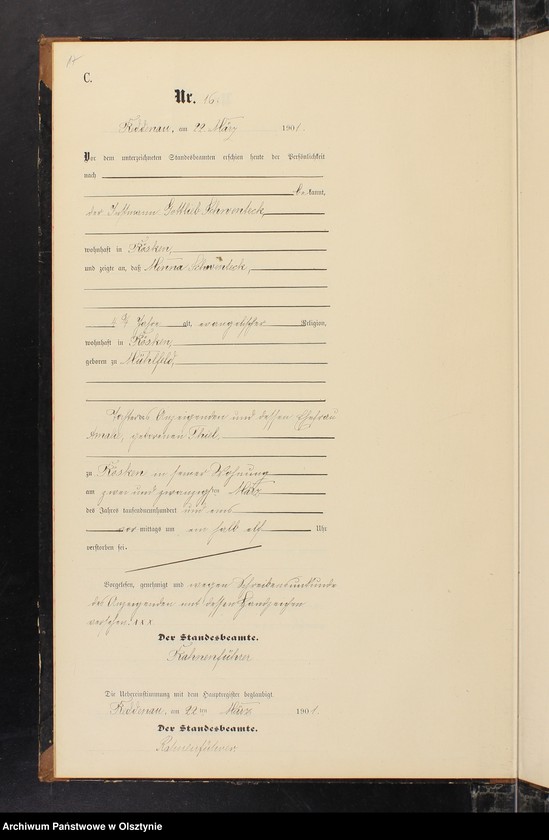 C.
Nr. 16.
am 22. März 1901.
Vor dem unterzeichneten Standesbeamten erschien heute der Persönlichkeit
nach
kannt,
der Gottlieb
wohnhaft in Kösken,
und zeigte an, daß Minna
Jahre alt, evangelischer Religion,
wohnhaft in Kösken,
geboren zu Mühlfeld,
Tochter des Anzeigenden und dessen Ehefrau
geborenen Thiel,
zu Kösken in seiner Wohnung
am zwei und zwanzigsten März
des Jahres tausendneunhundert und eins
vor mittags um ein halb elf Uhr
verstorben sei.
Vorgelesen, genehmigt und wegen Schreibensunkunde
des Anzeigenden mit dessen Handzeichen
versehen. x x x
Der Standesbeamte.
Die Uebereinstimmung mit dem Hauptregister beglaubigt.
am 22 ten März 1901.
Der Standesbeamte.
Archiwum Państwowe w Olsztynie